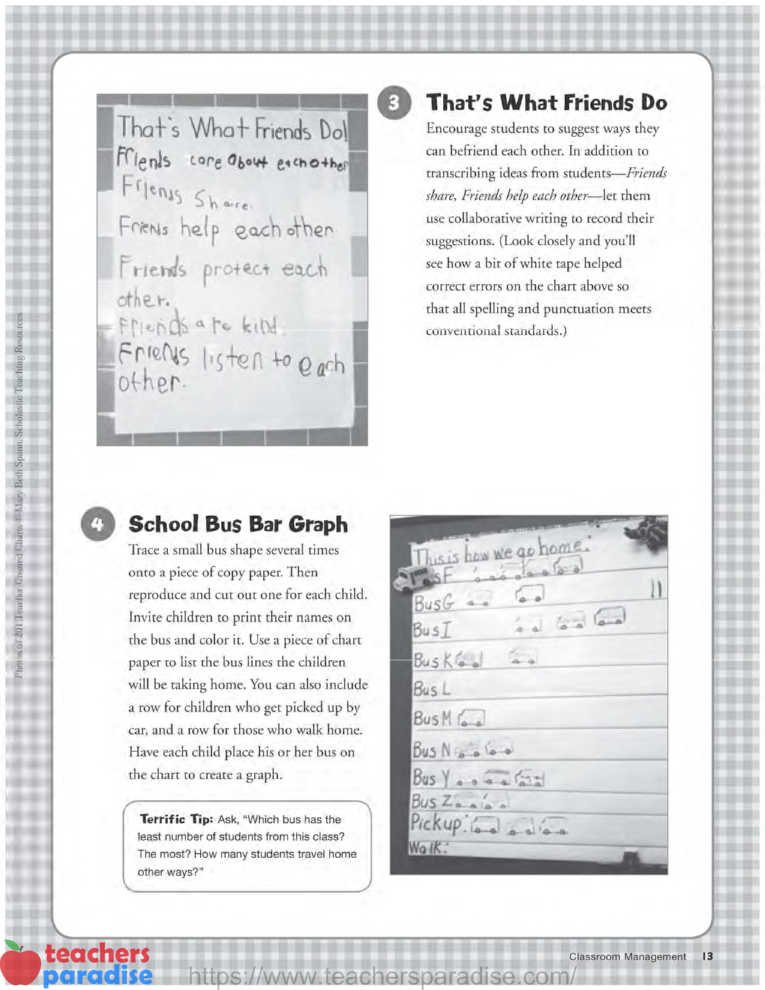 3 That's What Friends Do
Encourage students to suggest ways they
can befriend each other. In addition to
transcribing ideas from students—Friends
share, Friends help each other—let them
use collaborative writing to record their
suggestions. (Look closely and you'll
see how a bit of white tape helped
correct errors on the chart above so
that all spelling and punctuation meets
conventional standards.)
That's What Friends Do!
Friends care About each other
Friends Share.
Friends help each other.
Friends protect each
other.
Friends are kind.
Friends listen to each
other.
4 School Bus Bar Graph
Trace a small bus shape several times
onto a piece of copy paper. Then
reproduce and cut out one for each child.
Invite children to print their names on
the bus and color it. Use a piece of chart
paper to list the bus lines the children
will be taking home. You can also include
a row for children who get picked up by
car, and a row for those who walk home.
Have each child place his or her bus on
the chart to create a graph.
Terrific Tip: Ask, "Which bus has the
least number of students from this class?
The most? How many students travel home
other ways?"
This is how we go home:
F
Bus G
Bus I
Bus K
Bus L
Bus M
Bus N
Bus Y
Bus Z
Pickup:
Walk:
Photos of 201 Teacher-Created Charts © Mary Beth Spann, Scholastic Teaching Resources
Classroom Management 13
teachers
paradise
https://www.teachersparadise.com/